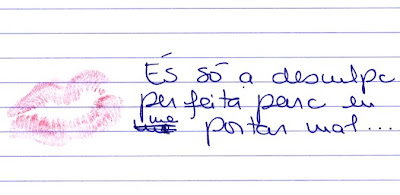 És só a desculpa
perfeita para eu
me portar mal...